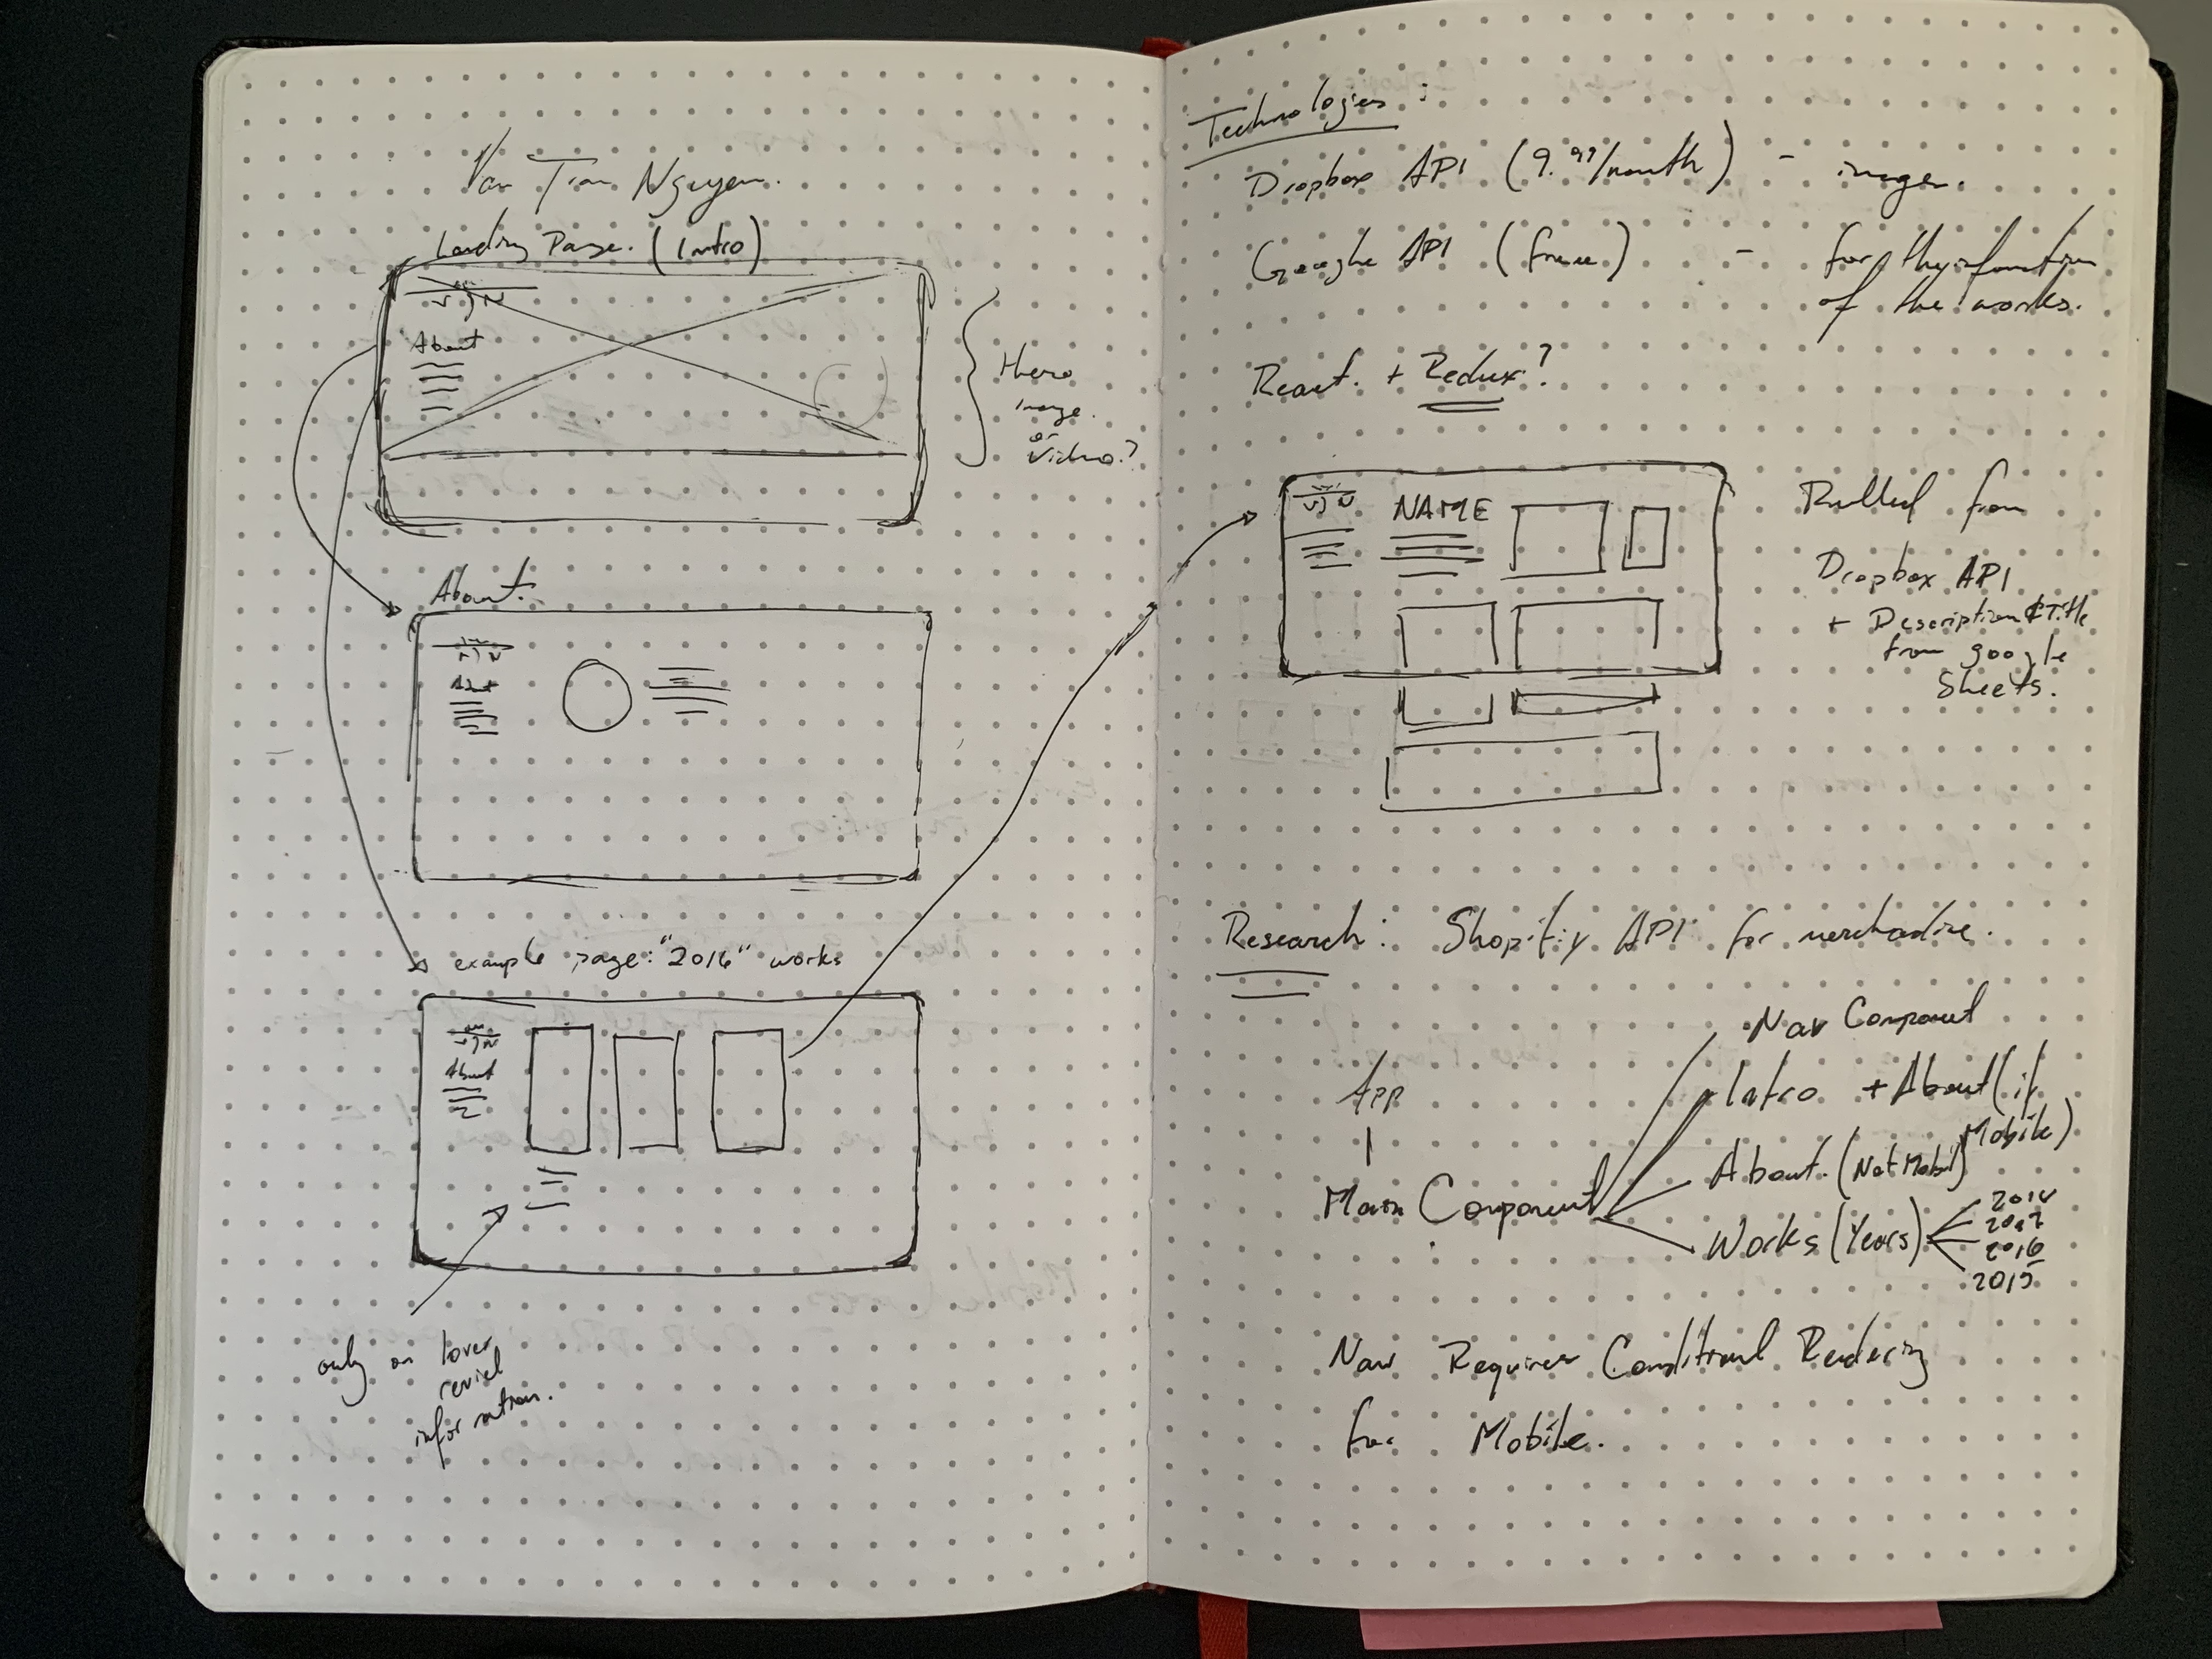 Van Tran Nguyen.
Landing Page. (Intro)
VTN
About
Hero
image
or
Video?
About.
VTN
About
example page: "2016" works
VTN
About
only on hover
information.
Technologies:
Dropbox API (9.99/month) - images.
Google API (free) - for the function
of the works.
React. + Redux?
VTN
NAME
Pulled from
Dropbox API
+ Description & Title
from google
Sheets.
Research: Shopify API for merchandise.
Nav Component
App
Intro + About (if
Mobile)
About. (Not Mobil)
Main Component
Works (Years)
2018
2017
2016
2015
Nav Requires Conditional Rendering
for Mobile.